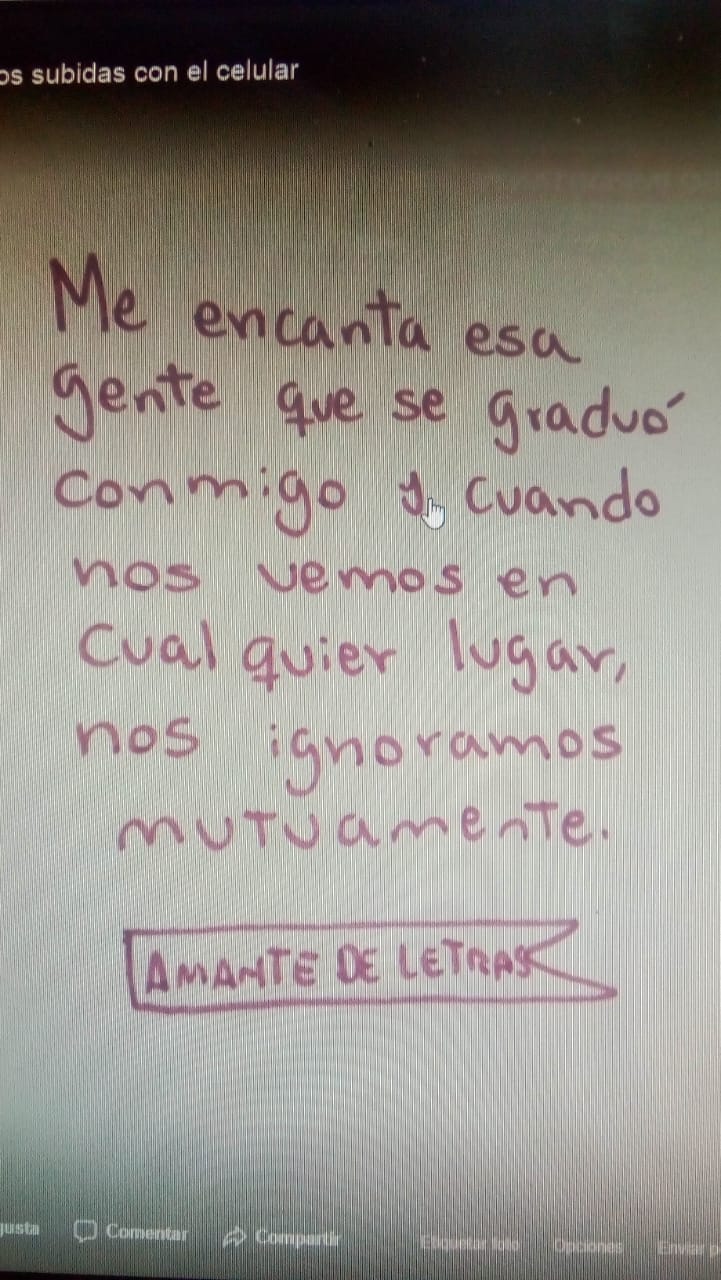 os subidas con el celular
Me encanta esa
gente que se graduó
conmigo y cuando
nos vemos en
cualquier lugar,
nos ignoramos
mutuamente.
AMANTE DE LETRAS
gusta Comentar Compartir Etiquetar foto Opciones Enviar p